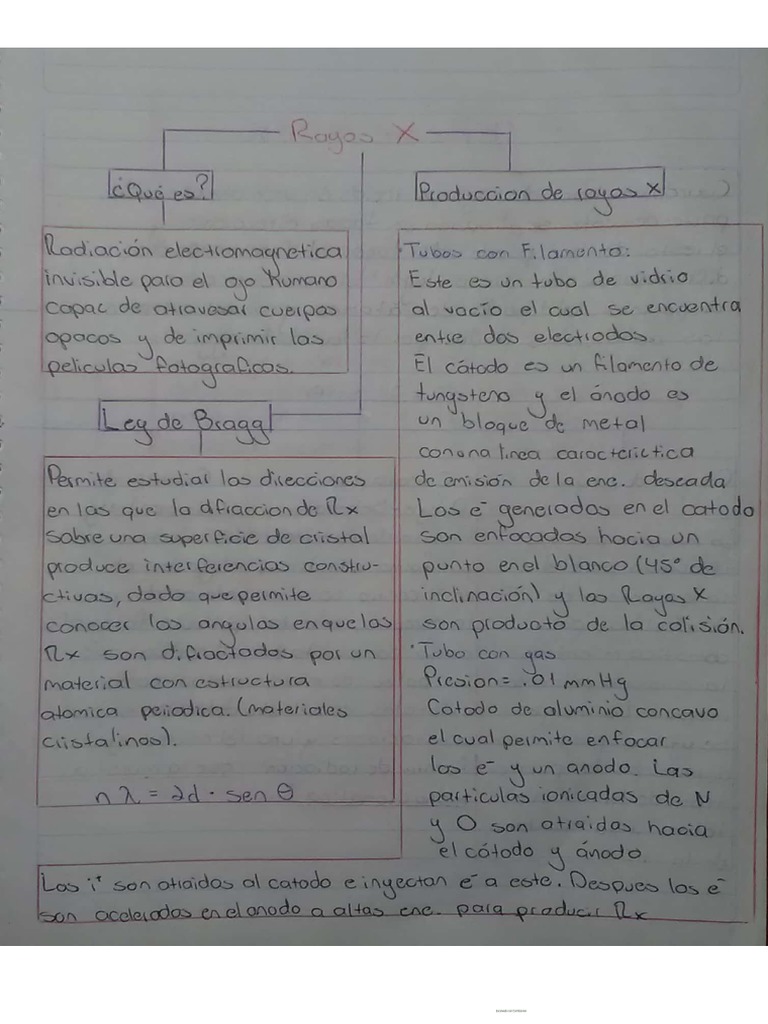 Rayos X
¿Qué es?
Radiación electromagnetica
invisible para el ojo humano
capac de atravesar cuerpos
opacos y de imprimir las
peliculas fotograficas.
Ley de Bragg
Permite estudiar las direcciones
en las que la dfraccion de Rx
sobre una superficie de cristal
produce interferencias constru-
ctivas, dado que permite
conocer los angulos en que los
Rx son difractados por un
material con estructura
atomica periodica. (materiales
cristalinos).
nλ = 2d · sen θ
Produccion de rayos X
· Tubos con Filamento:
Este es un tubo de vidrio
al vacío el cual se encuentra
entre dos electrodos.
El cátodo es un filamento de
tungsteno y el ánodo es
un bloque de metal
con una linea caracterictica
de emisión de la ene. deseada
Los e⁻ generados en el catodo
son enfocados hacia un
punto en el blanco (45° de
inclinación) y los Rayos X
son producto de la colisión.
· Tubo con gas
Presion = .01 mmHg
Catodo de aluminio concavo
el cual permite enfocar
los e⁻ y un anodo. Las
particulas ionicadas de N
y O son atraidas hacia
el cátodo y ánodo.
Los i⁺ son atraidos al catodo e inyectan e⁻ a este. Despues los e⁻
son acelerados en el anodo a altas ene. para producir Rx